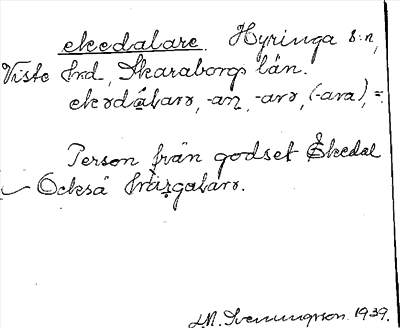 ekedalare. Hyringa s:n,
Viste hrd, Skaraborgs län.
ekədȧlarə, -an, -arə, (-ara), =.
Person från godset Ekedal
Också
L.M. Svenungsson 1939.